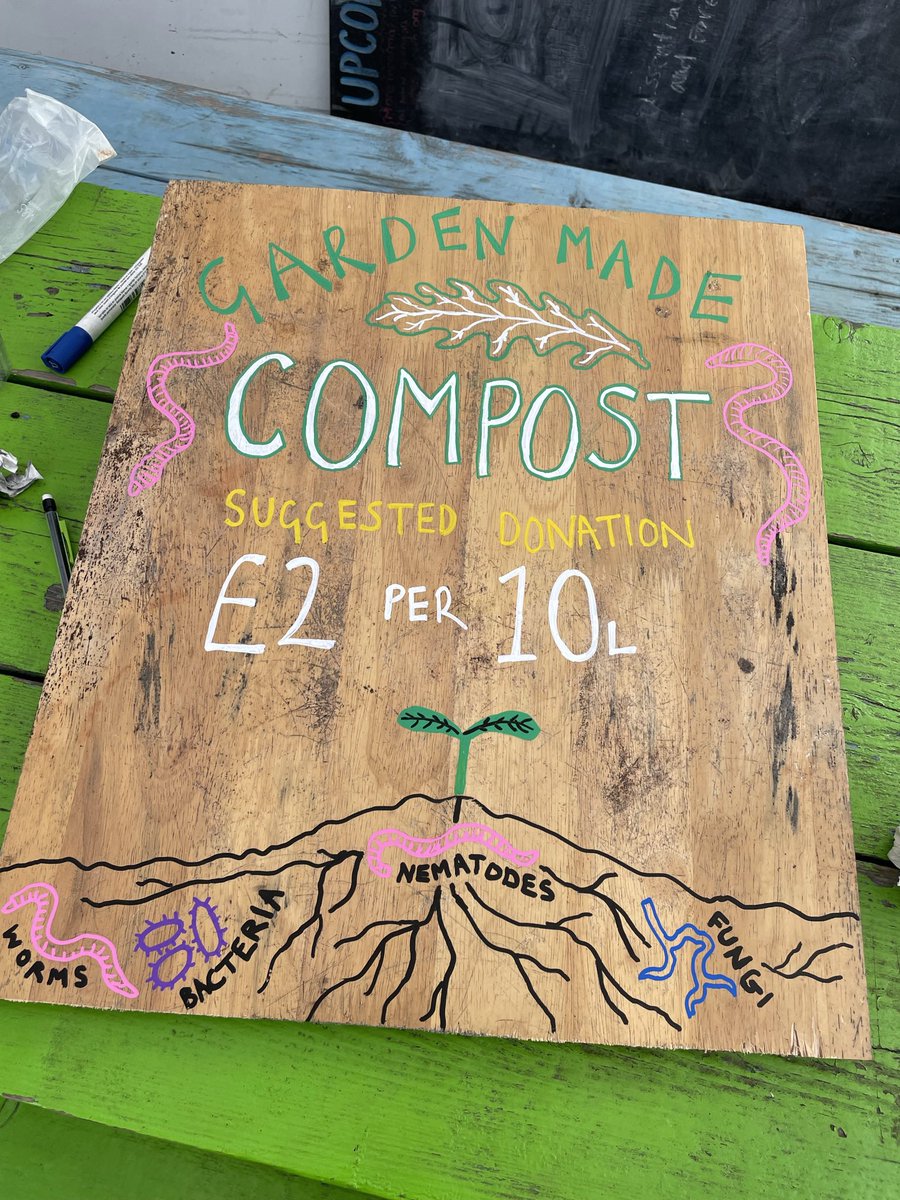 UPCO
GARDEN MADE
COMPOST
SUGGESTED DONATION
£2 PER 10L
NEMATODES
WORMS
BACTERIA
FUNGI